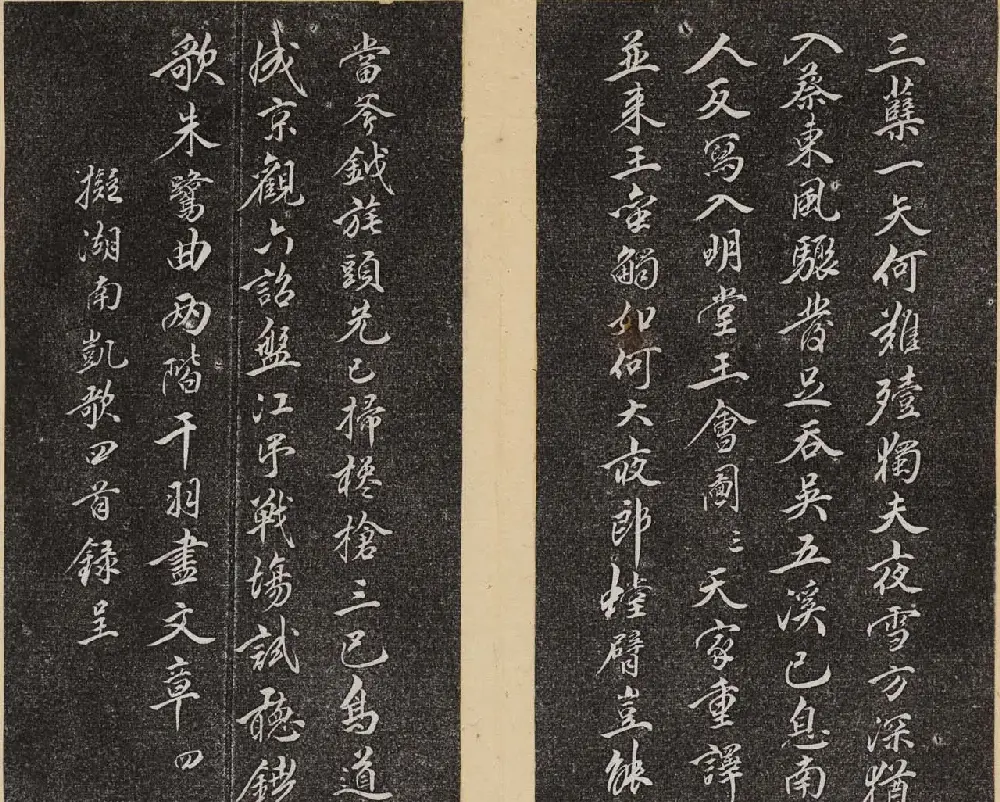 三蘖一矢何難殪獨夫夜雪方深猶
入蔡東風驟發足吞吳五溪已息南
人反寫入明堂王會圖三天家重譯
並來王蛮觸如何大夜郎螳臂豈能
當斧鉞旄頭先已掃欃槍三巴鳥道
成京觀六詔盤江弔戰場試聽鐃
歌朱鷺曲兩階干羽盡文章四
擬湖南凱歌四首錄呈